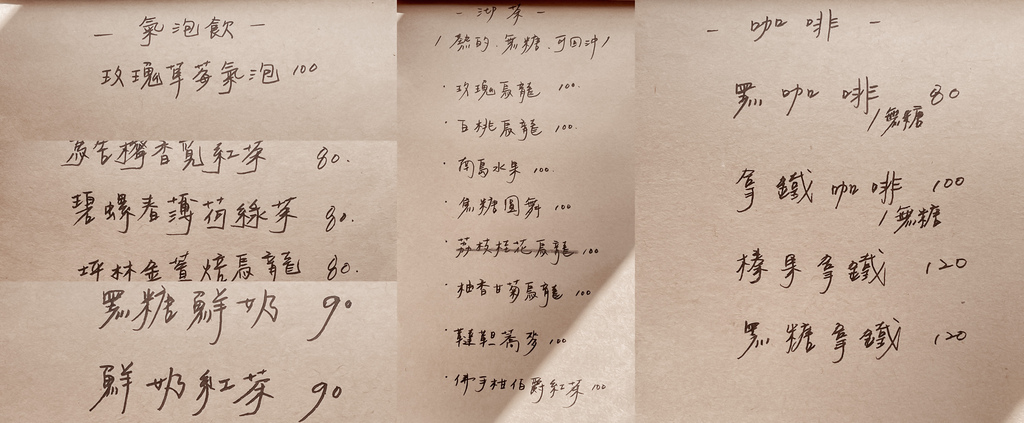 - 氣泡飲 -
玫瑰草莓氣泡 100
檸香覓紅茶 80.
碧螺春薄荷綠茶 80.
坪林金萱焙烏龍 80.
黑糖鮮奶 90
鮮奶紅茶 90
- 湖茶 -
/ 熱的.無糖.可回沖 /
· 玫瑰烏龍 100.
· 白桃烏龍 100.
· 南島水果 100.
· 焦糖圓舞 100
· 荔枝桂花烏龍 100
· 柚香甘菊烏龍 100
· 韃靼蕎麥 100
· 佛手柑伯爵紅茶 100
- 咖啡 -
黑咖啡 80
/無糖
拿鐵咖啡 100
/無糖
榛果拿鐵 120
黑糖拿鐵 120